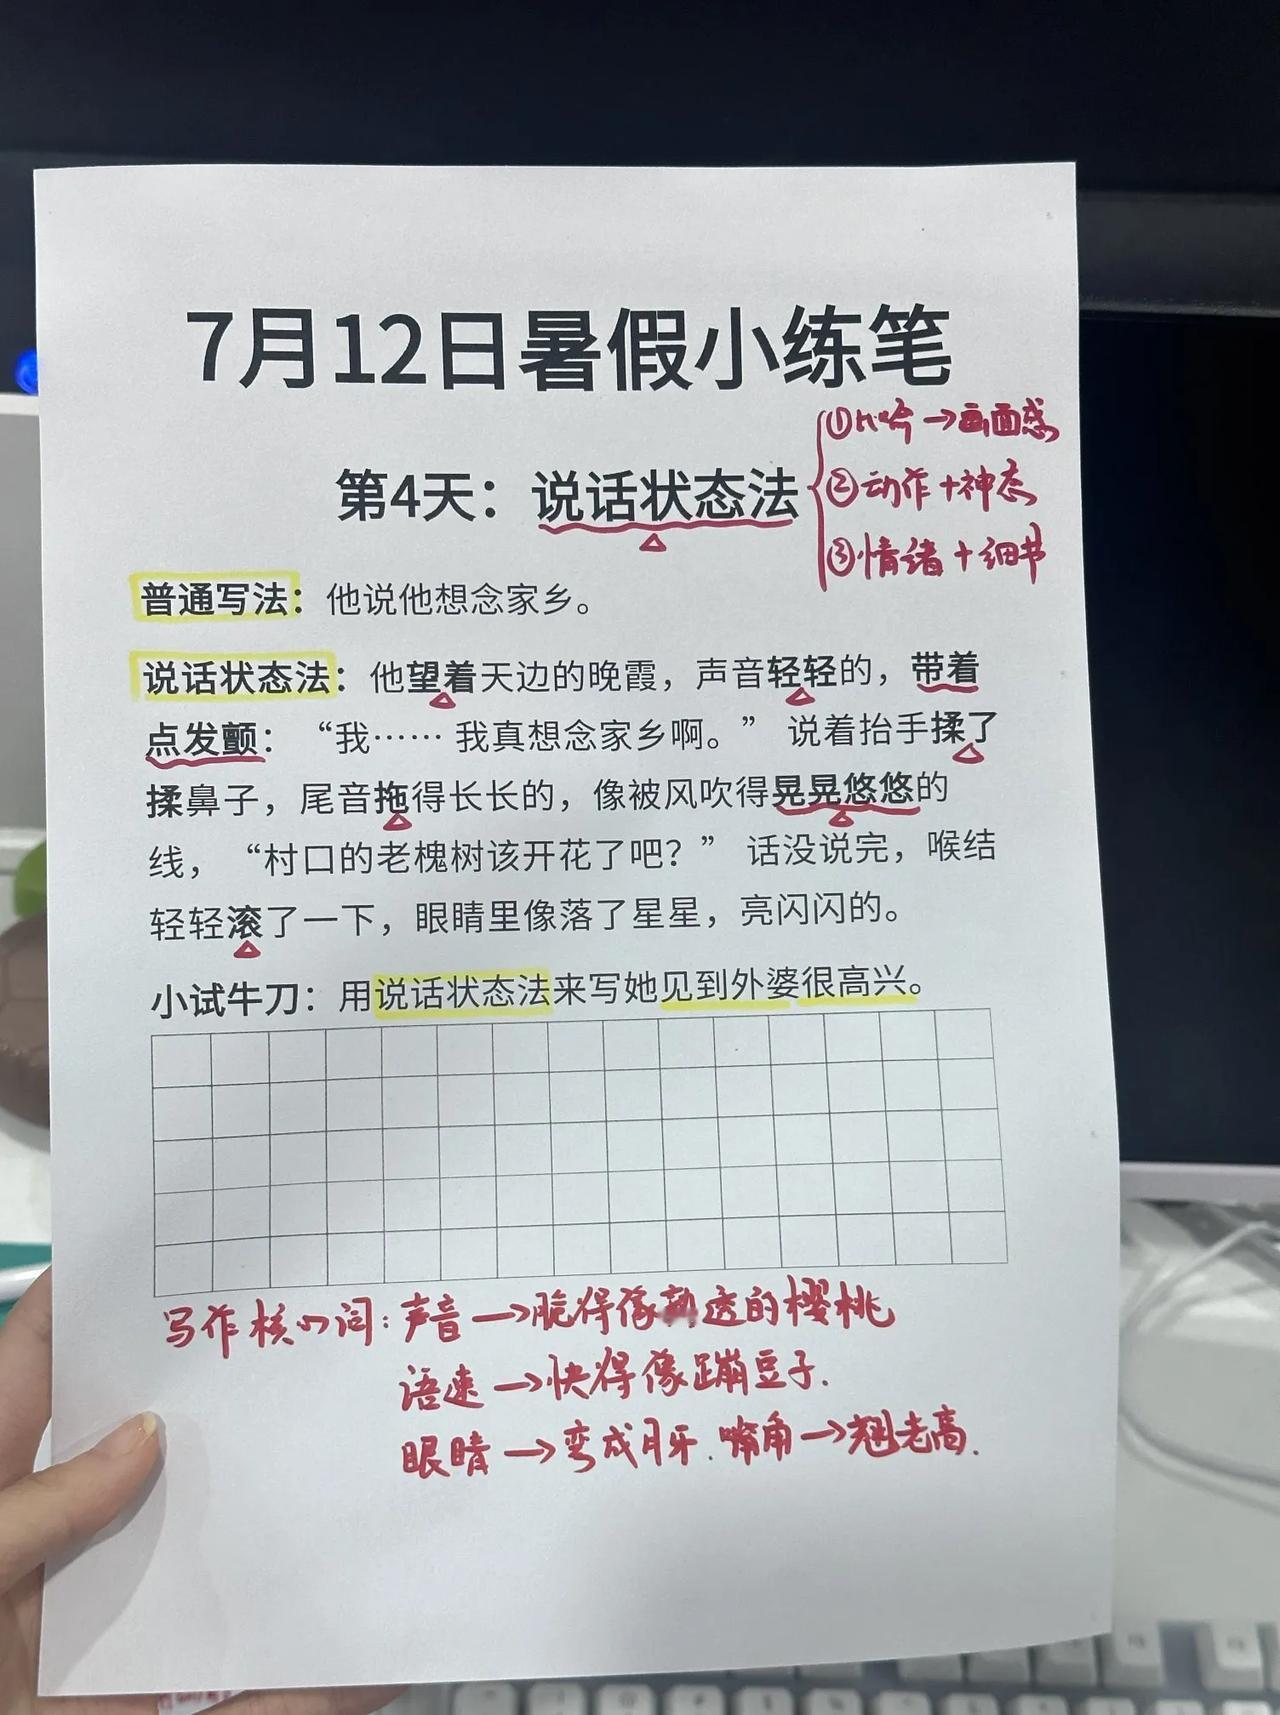 7月12日暑假小练笔
①比喻→画面感
第4天：说话状态法
②动作+神态
③情绪+细节
普通写法：他说他想念家乡。
说话状态法：他望着天边的晚霞，声音轻轻的，带着
点发颤：“我…… 我真想念家乡啊。” 说着抬手揉了
揉鼻子，尾音拖得长长的，像被风吹得晃晃悠悠的
线，“村口的老槐树该开花了吧？” 话没说完，喉结
轻轻滚了一下，眼睛里像落了星星，亮闪闪的。
小试牛刀：用说话状态法来写她见到外婆很高兴。
写作核心词：声音→脆得像熟透的樱桃
语速→快得像蹦豆子.
眼睛→变成月牙.嘴角→翘老高.